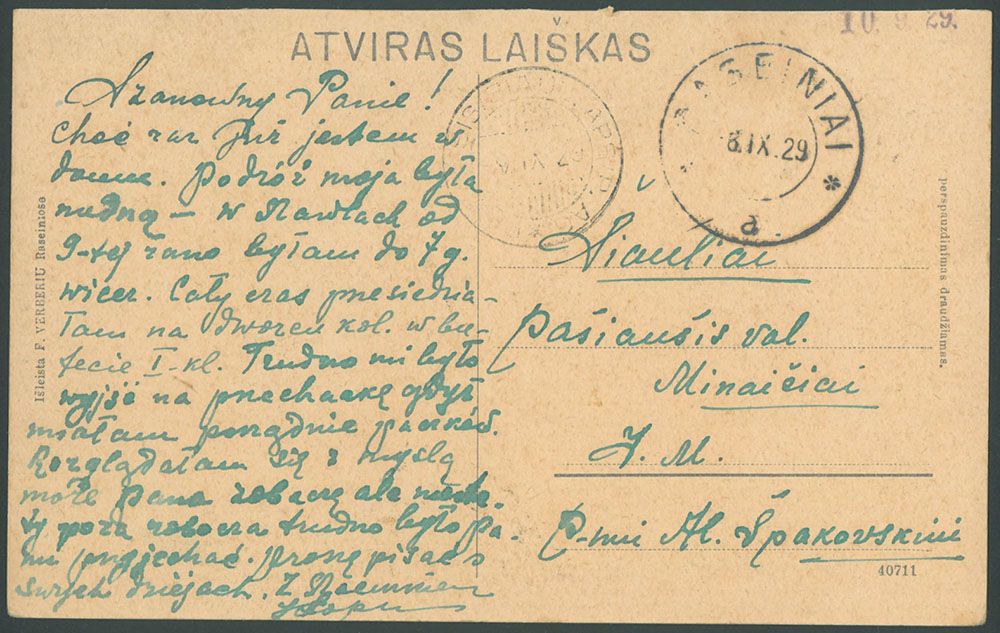 10. 9 29.
ATVIRAS LAIŠKAS
RASEINIAI
8.IX.29
a
IX 29
Szanowny Panie!
Choć raz już jestem w
domu. Podróż moja była
nudną — w Szawlach od
9-tej rano byłam do 7 g.
wiecz. Cały czas przesiedzia-
łam na dworcu kol. w bu-
fecie I-kl. Trudno mi było
wyjść na przechadzkę gdyż
miałam porządnie paczków.
Rozglądałam się z myślą
może Pana zobaczę ale
ty pora robocza trudno było Pa-
nu przyjechać. Proszę pisać o
swych dziejach. Z
Šiauliai
Pašiaušis val.
Minaičiai
J. M.
P-nui Al. Špakovskini
40711
Išleista F. VERBERIU Raseiniose
perspauzdinimas draudžiamas.